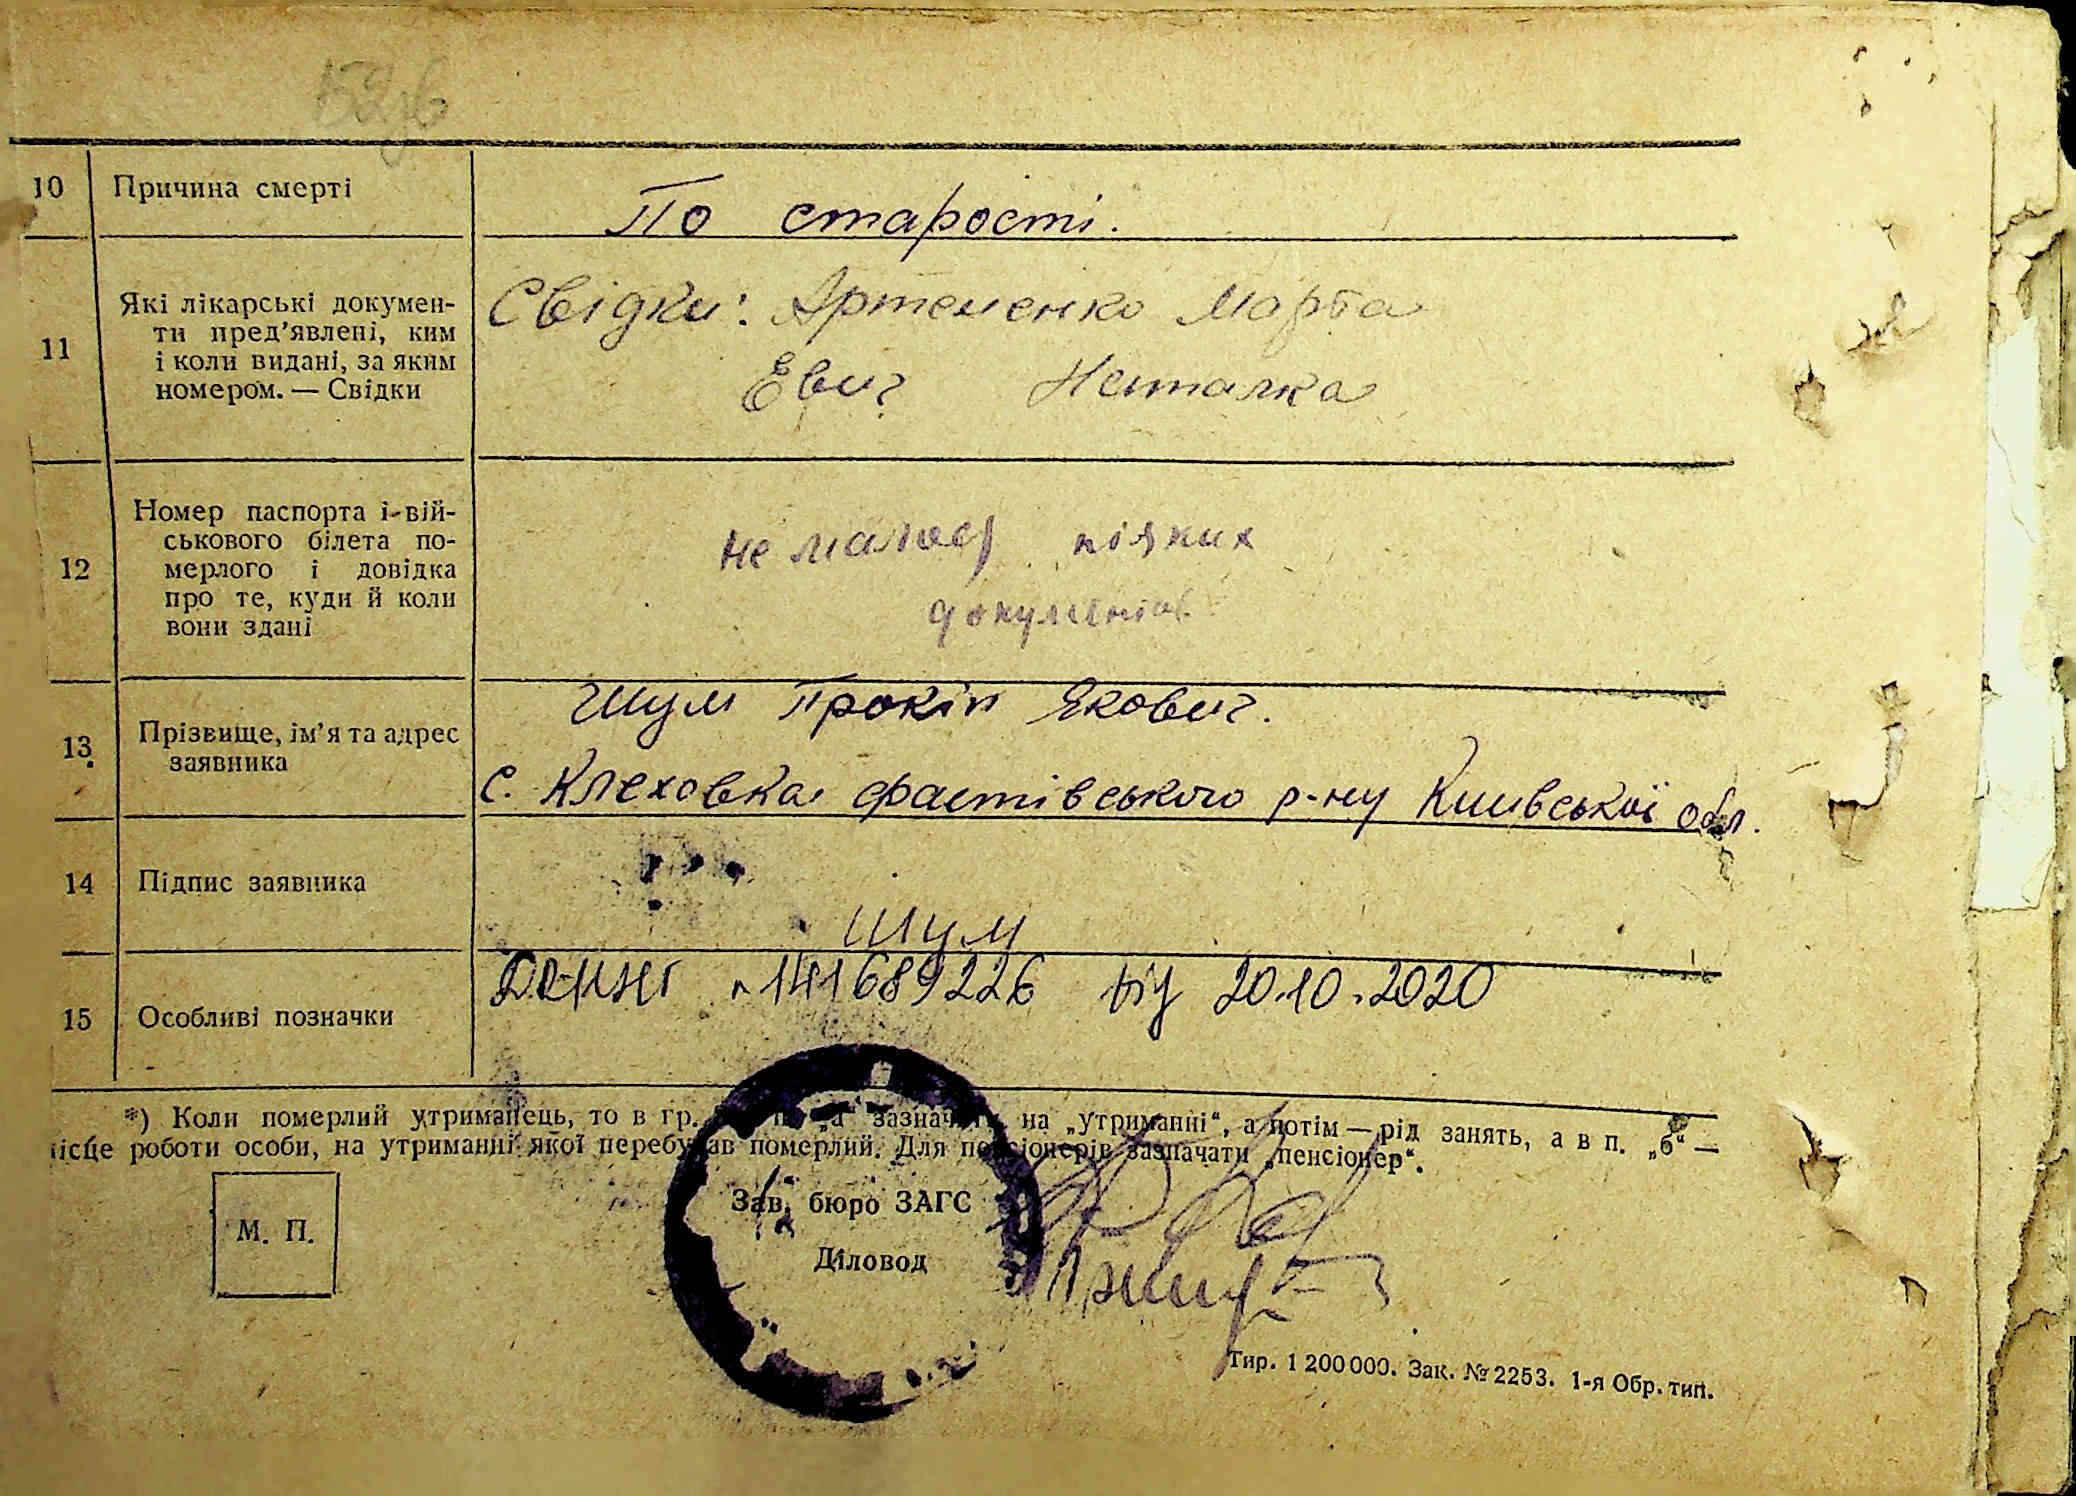 10 Причина смерті По старості.
11 Які лікарські докумен-
ти пред'явлені, ким
і коли видані, за яким
номером. — Свідки
Свідки: Артеменко Марта
Євич Наталка
12 Номер паспорта і вій-
ськового білета по-
мерлого і довідка
про те, куди й коли
вони здані
не малося ніяких
документів
13 Прізвище, ім'я та адрес
заявника
Шум Прокіп Якович.
с. Клеховка фастівського р-ну Київської обл.
14 Підпис заявника Шум
15 Особливі позначки
141689226 від 20.10.2020
*) Коли померлий утриманець, то в гр. „а“ зазначити на „утриманні“, а потім — рід занять, а в п. „б“ —
місце роботи особи, на утриманні якої перебував померлий. Для пенсіонерів зазначати „пенсіонер“.
М. П.
Зав. бюро ЗАГС
Діловод
Тир. 1 200 000. Зак. № 2253. 1-я Обр. тип.